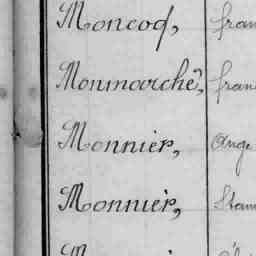 Moncoq, fran
Monmarché, fran
Monnier, Ange
Monnier, Stan